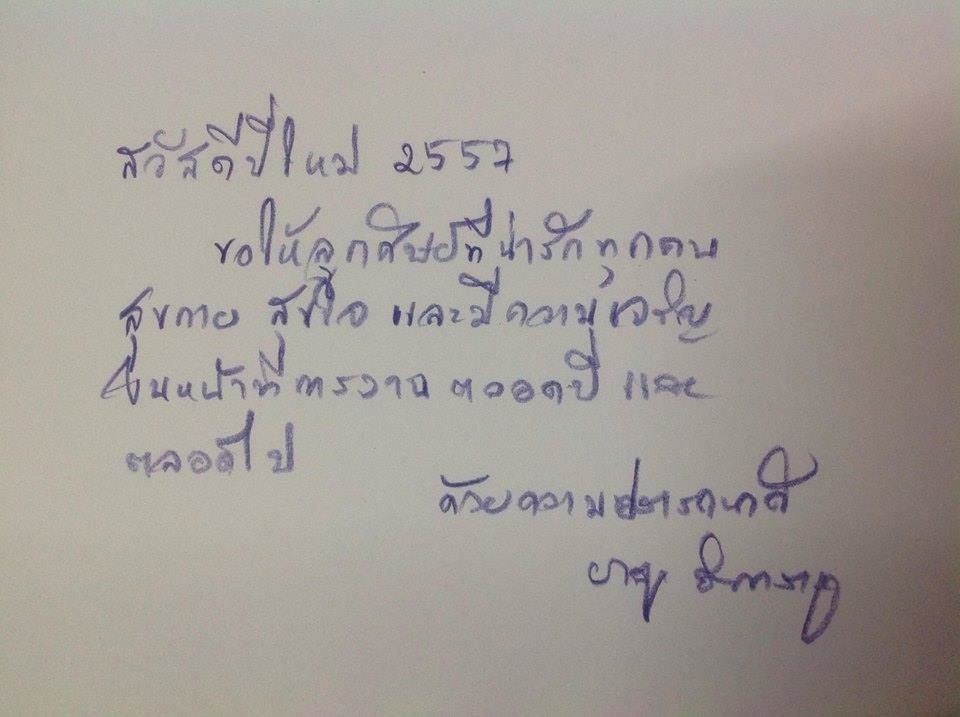 สวัสดีปีใหม่ 2557
ขอให้ลูกศิษย์ที่น่ารักทุกคน
สุขกาย สุขใจ และมีความเจริญ
ในหน้าที่การงาน ตลอดปี และ
ตลอดไป
ด้วยความปรารถนาดี